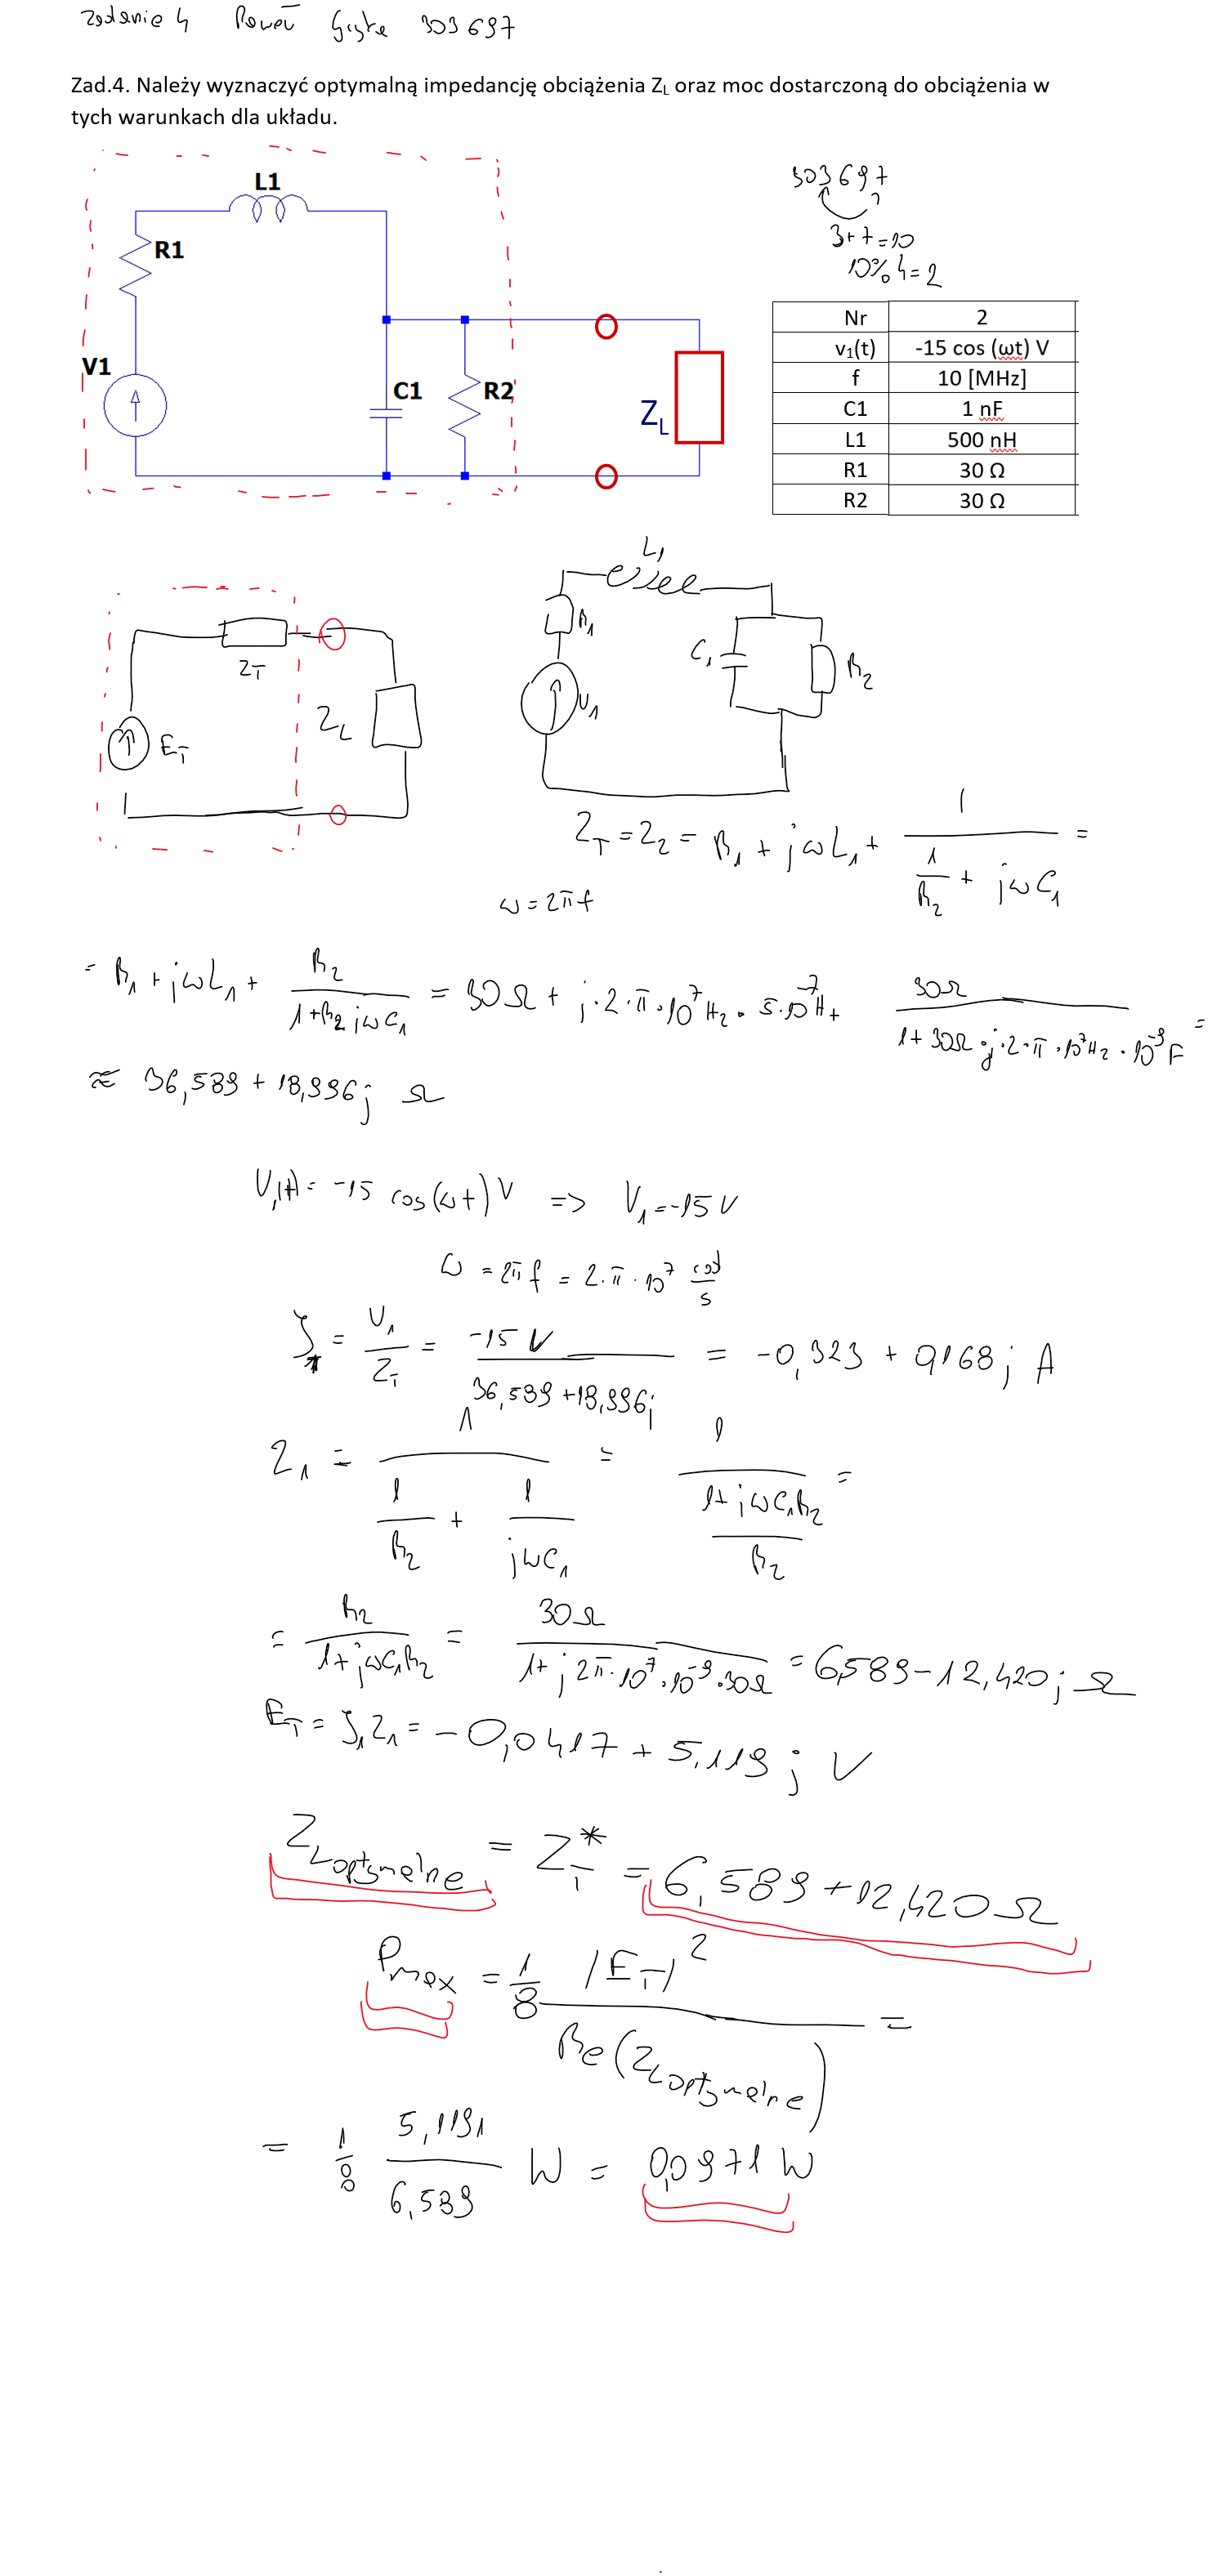 Zadanie 4 Paweł 303697
Zad.4. Należy wyznaczyć optymalną impedancję obciążenia Z_L oraz moc dostarczoną do obciążenia w
tych warunkach dla układu.
L1
R1
V1
C1
R2
Z_L
303697
3+7=10
10%4=2
Nr 2
v₁(t) -15 cos (ωt) V
f 10 [MHz]
C1 1 nF
L1 500 nH
R1 30 Ω
R2 30 Ω
Z_T
E_T
Z_L
L₁
R₁
U₁
C₁
R₂
Z_T = Z_Z = R₁ + jωL₁ + 1 / (1/R₂ + jωC₁) =
ω = 2πf
= R₁ + jωL₁ + R₂ / (1+R₂jωC₁) = 30Ω + j·2·π·10⁷Hz·5·10⁻⁷H + 30Ω / (1+30Ω·j·2·π·10⁷Hz·10⁻⁹F) =
≈ 36,589 + 18,996j Ω
U₁(t) = -15 cos(ωt) V => V₁ = -15V
ω = 2πf = 2·π·10⁷ rad/s
I₁ = U₁/Z_T = -15V / (36,589+18,996j) = -0,323 + 0,168j A
Z₁ = 1 / (1/R₂ + 1/(jωC₁)) = 1 / ((1+jωC₁R₂)/R₂) =
= R₂ / (1+jωC₁R₂) = 30Ω / (1+j2π·10⁷·10⁻⁹·30Ω) = 6,589-12,420j Ω
E_T = I₁Z₁ = -0,0417 + 5,119j V
Z_Loptymalne = Z_T* = 6,589+12,420Ω
P_max = 1/8 |E_T|² / Re(Z_Loptymalne) =
= 1/8 5,1191/6,589 W = 0,0971 W